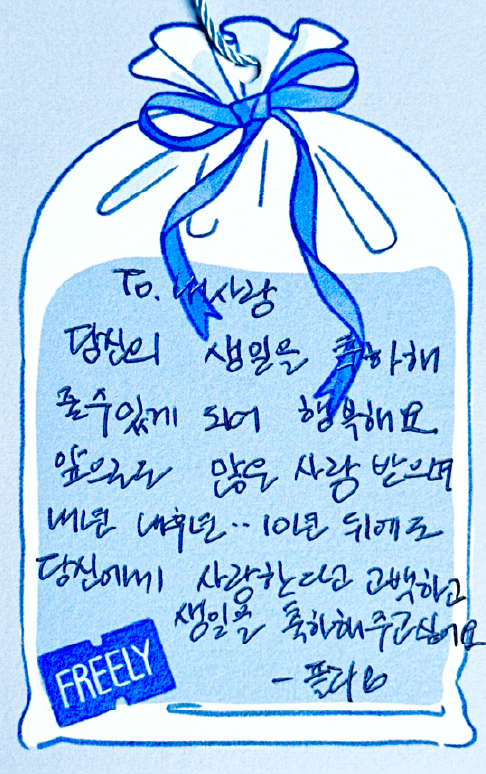 To. 내사랑
당신의 생일을 축하해
줄수있게 되어 행복해요
앞으로도 많은 사랑 받으며
내년 내후년.. 10년 뒤에도
당신에게 사랑한다고 고백하고
생일을 축하해주고싶어요
FREELY